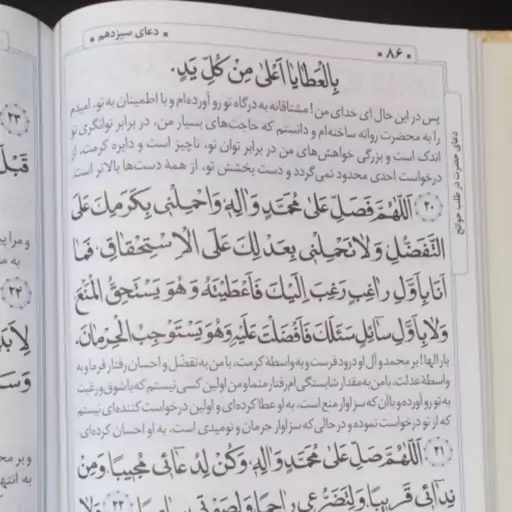 ۸۶
دعای سیزدهم
بِالْعَطایا اَعْلی مِنْ کُلِّ یَدٍ.
پس در این حال ای خدای من! مشتاقانه به درگاه تو رو آورده‌ام و با اطمینان به تو، امیدم
را به محضرت روانه ساخته‌ام و دانستم که حاجت‌های بسیار من، در برابر توانگری تو
اندک است و بزرگی خواهش‌های من در برابر توان تو، ناچیز است و دایره کرمت، از
درخواست احدی محدود نمی‌گردد و دست بخشش تو، از همهٔ دست‌ها بالاتر است.
﴿۲۰﴾ اَللّهُمَّ فَصَلِّ عَلی مُحَمَّدٍ وَالِهِ، وَاحْمِلْنی بِکَرَمِکَ عَلَی
التَّفَضُّلِ وَلا تَحْمِلْنی بِعَدْلِکَ عَلَی الْاِسْتِحْقاقِ، فَما
اَنَا بِاَوَّلِ راغِبٍ رَغِبَ اِلَیْکَ فَاَعْطَیْتَهُ وَهُوَ یَسْتَحِقُّ الْمَنْعَ
وَلا بِاَوَّلِ سائِلٍ سَئَلَکَ فَاَفْضَلْتَ عَلَیْهِ وَهُوَ یَسْتَوْجِبُ الْحِرْمانَ.
بارالها! بر محمد و آل او درود فرست و به واسطهٔ کرمت، با من به تفضّل و احسان رفتار فرما و به
واسطهٔ عدلت، با من به مقدار شایستگی‌ام رفتار منما و من اولین کسی نیستم که با شوق و رغبت
به تو رو آورده و با آن که سزاوار منع است، به او عطا کرده‌ای و اولین درخواست کننده‌ای نیستم
که از تو درخواست نموده و در حالی که سزاوار حرمان و نومیدی است، به او احسان کرده‌ای.
﴿۲۱﴾ اَللّهُمَّ صَلِّ عَلی مُحَمَّدٍ وَالِهِ، وَکُنْ لِدُعائی مُجیبًا وَمِنْ
نِدائی قَریبًا وَلِتَضَرُّعی راحِمًا وَلِصَوْتی سامِعًا ﴿۲۲﴾ وَلا
دعای حضرت در طلب حوائج
۲۳
قَبْلَ
۲۴